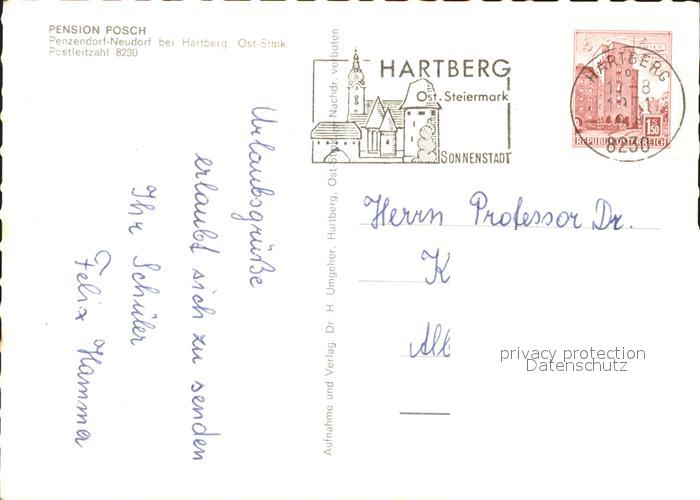 PENSION POSCH
Penzendorf-Neudorf bei Hartberg, Ost-Stmk
Postleitzahl 8230
Urlaubsgrüße
erlaubt sich zu senden
Ihr Schüler
Felix Hammer
Aufnahme und Verlag: Dr. H. Umgeher, Hartberg, Ost-Stmk. Nachdr. verboten
HARTBERG
Ost. Steiermark
SONNENSTADT
HARTBERG
8230
1.50
REPUBLIK ÖSTERREICH
Herrn Professor Dr.
K
All
privacy protection
Datenschutz